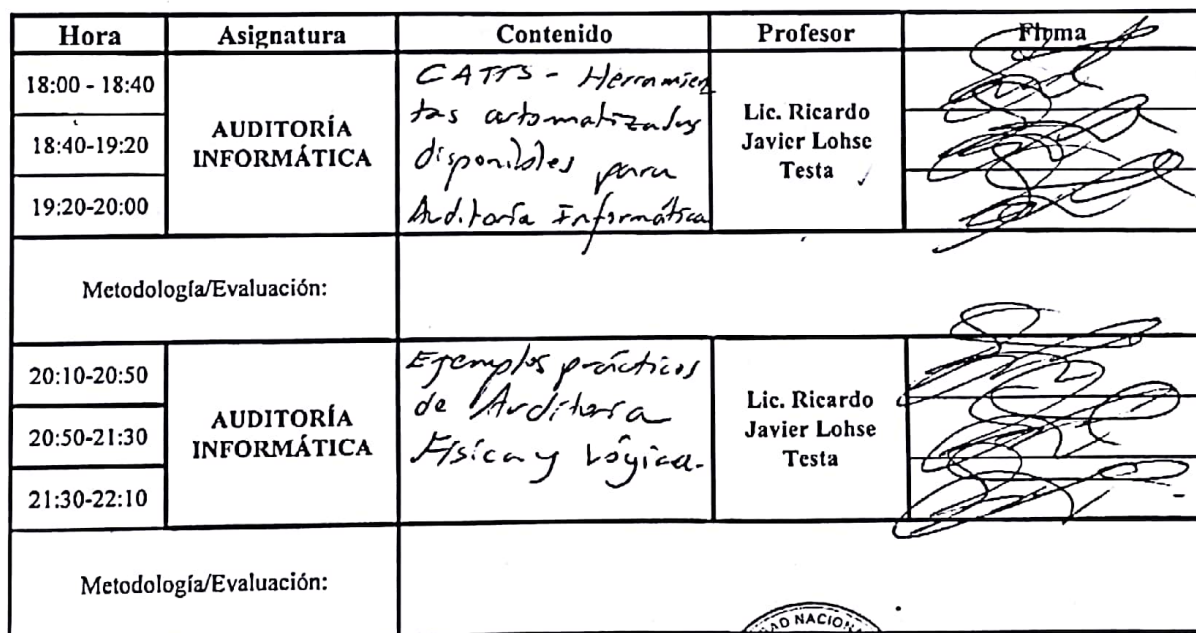 Hora Asignatura Contenido Profesor Firma
18:00 - 18:40
18:40-19:20
19:20-20:00
AUDITORÍA
INFORMÁTICA
CATTS - Herramien
tas automatizadas
disponibles para
Auditoría Informática
Lic. Ricardo
Javier Lohse
Testa
Metodología/Evaluación:
20:10-20:50
20:50-21:30
21:30-22:10
AUDITORÍA
INFORMÁTICA
Ejemplos prácticos
de Auditoría
Física y Lógica.
Lic. Ricardo
Javier Lohse
Testa
Metodología/Evaluación:
NACION